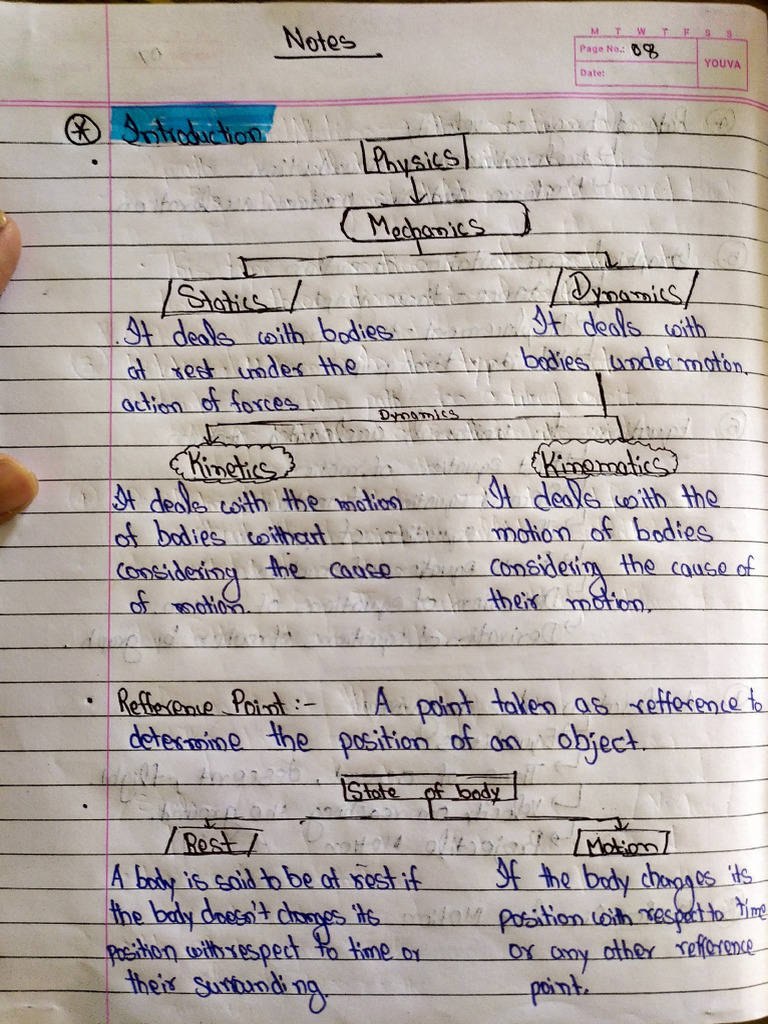 Notes
M T W T F S S
Page No.: 08
Date:
YOUVA
* Introduction
Physics
Mechanics
Statics
Dynamics
. It deals with bodies
at rest under the
action of forces.
It deals with
bodies under moton.
Dynamics
Kinetics
Kinematics
It deals with the motion
of bodies without
considering the cause
of motion.
It deals with the
motion of bodies
considering the cause of
their motion.
• Refference Point :- A point taken as refference to
determine the position of an object.
State of body
Rest
Motion
A body is said to be at rest if
the body doesn't changes its
position with respect to time or
their surrounding.
If the body changes its
position with respect to time
or any other refference
point.